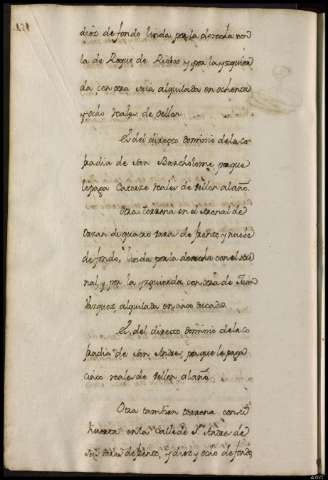 diez de fondo linda por la derecha con
la de Roque de Riobo y por la yzquier
da con otra suia alquilada en ochenta
y ocho reales de vellon
Es del directo dominio de la co
fradia de San Bartholome porque
le paga Catorze reales de vellon al año.
Otra terrena en el Arenal de
quatro varas de frente y nueve
de fondo, linda por la derecha con el
y por la yzquierda con otra de Juan
Vazquez alquilada en
Es del directo dominio de la co
fradia de San Andres porque le paga
cinco reales de vellon al año.
Otra tambien terrena con su
huerta en la Calle de Sn Andres de
seis varas de frente, y diez y ocho de fondo